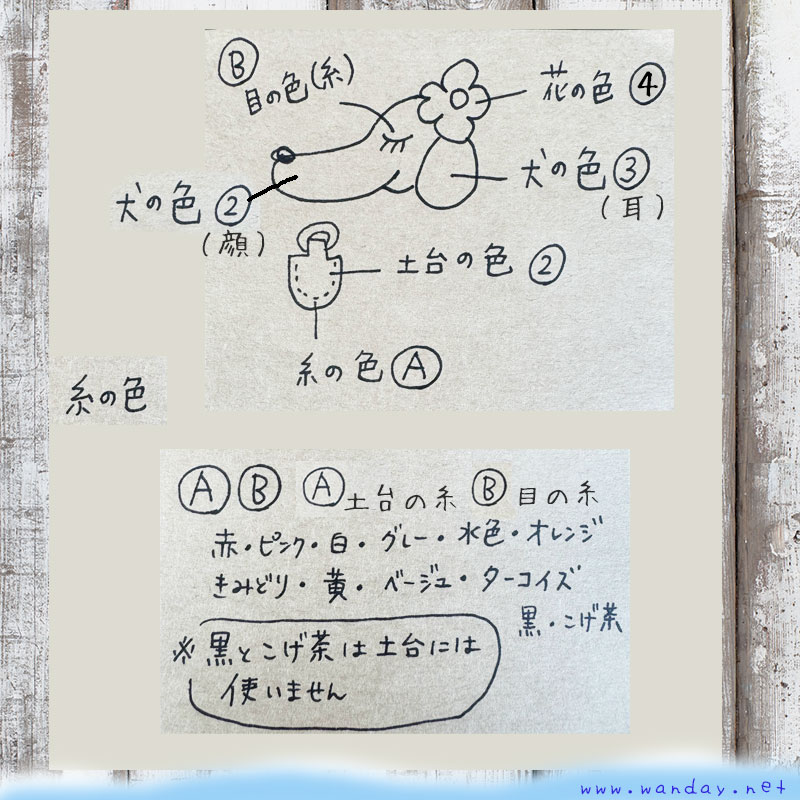 Ⓑ
目の色(糸)
花の色 ④
犬の色 ③
(耳)
犬の色 ②
(顔)
土台の色 ②
糸の色 Ⓐ
糸の色
ⒶⒷ Ⓐ土台の糸 Ⓑ目の糸
赤・ピンク・白・グレー・水色・オレンジ
きみどり・黄・ベージュ・ターコイズ
黒・こげ茶
※黒とこげ茶は土台には
使いません
www.wanday.net